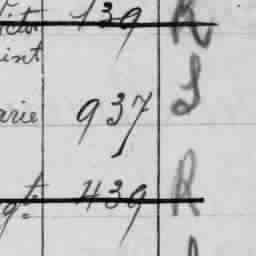 139 R
int
arie 937 S
gt. 439 R